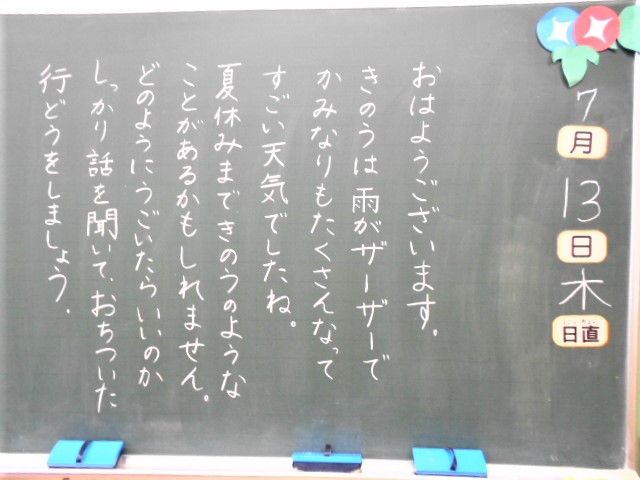 7月13日木
日直
おはようございます。
きのうは雨がザーザーで
かみなりもたくさんなって
すごい天気でしたね。
夏休みまできのうのような
ことがあるかもしれません。
どのようにうごいたらいいのか
しっかり話を聞いて、おちついた
行どうをしましょう.